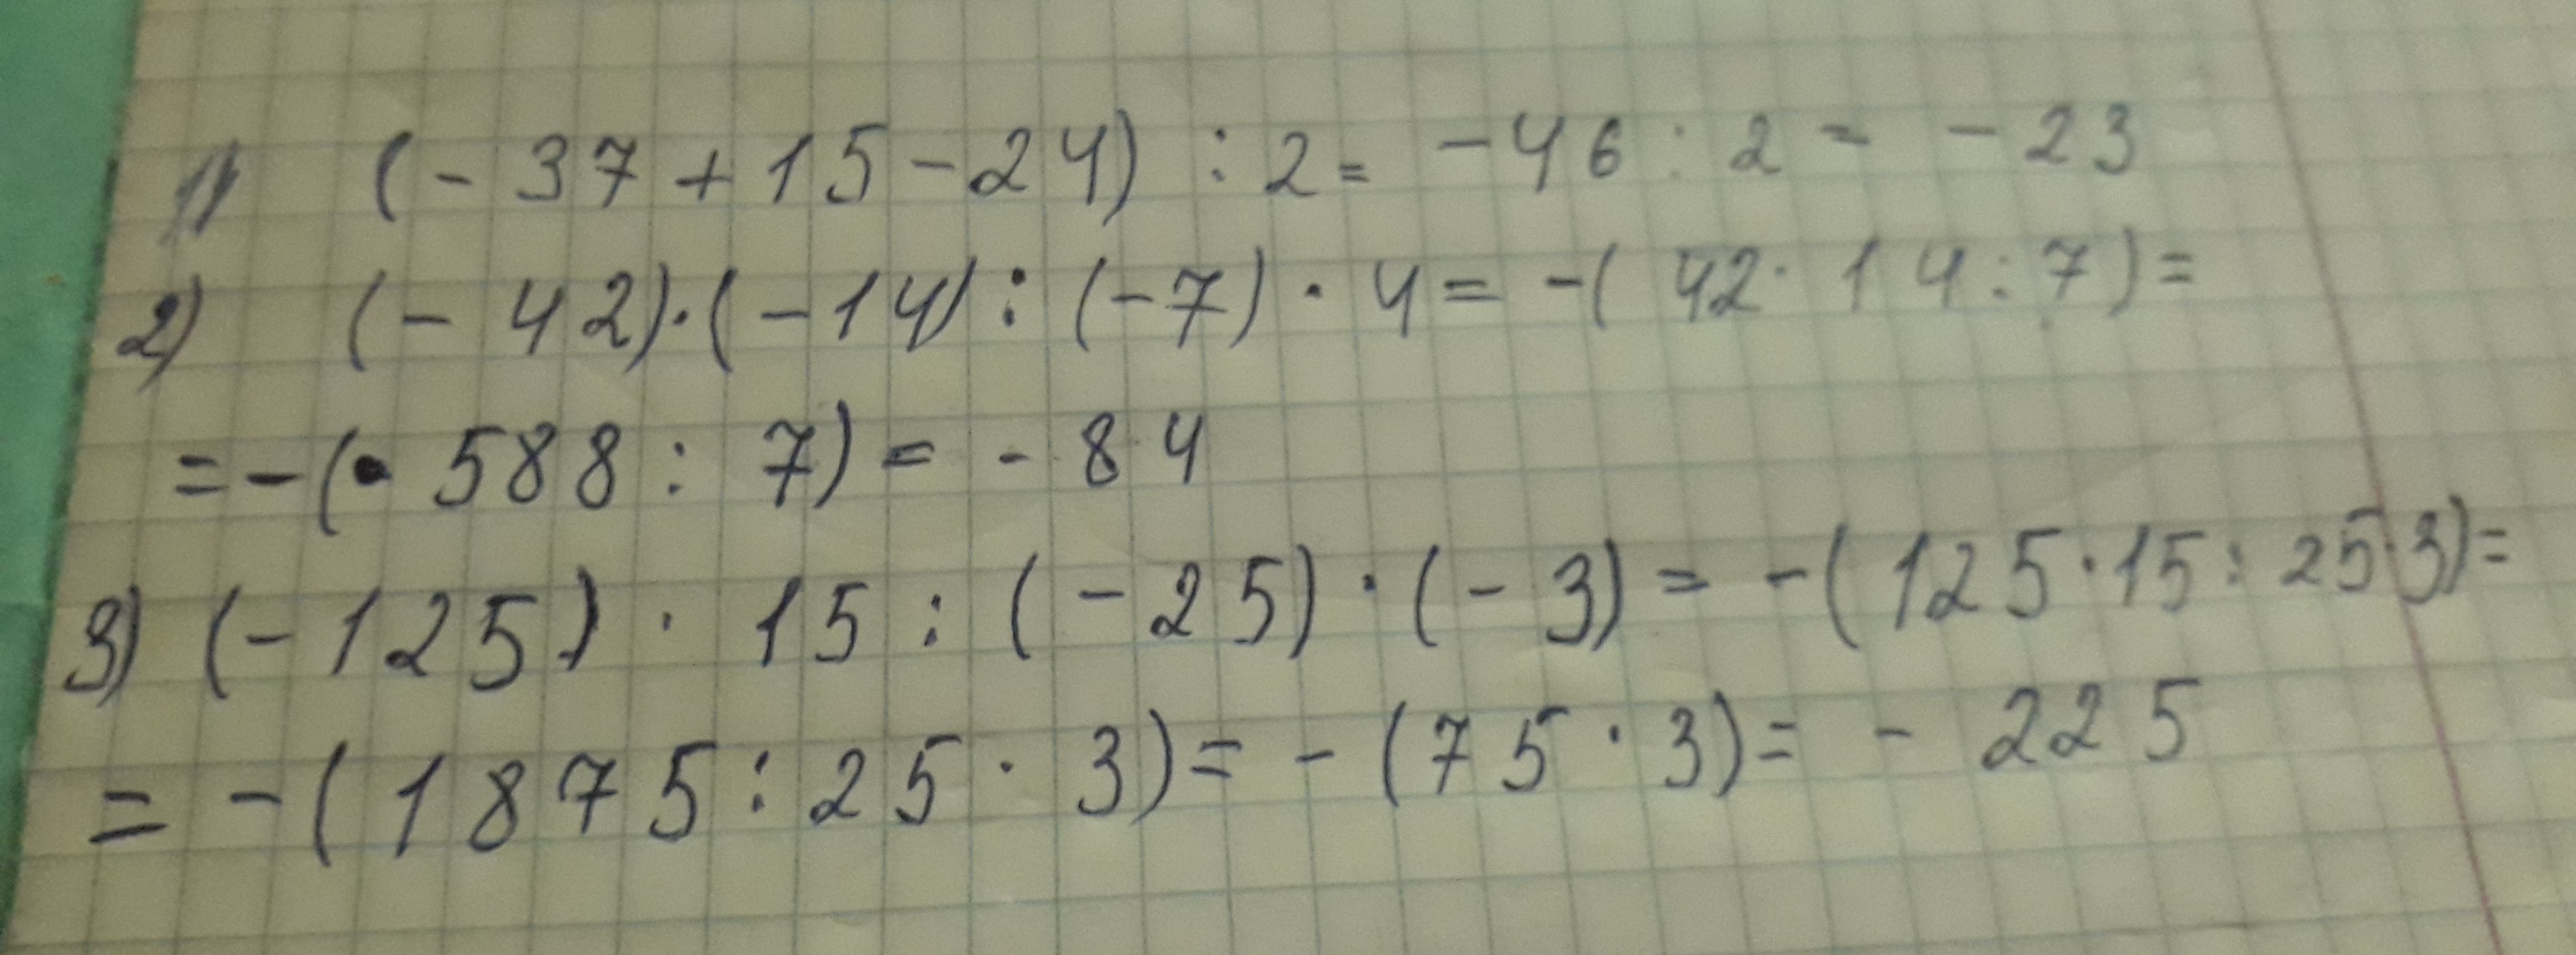 1) (-37+15-24):2= -46:2= -23
2) (-42)·(-14):(-7)·4= -(42·14:7)=
=-(588:7)= -84
3) (-125)·15:(-25)·(-3)= -(125·15:25·3)=
= -(1875:25·3)= -(75·3)= -225